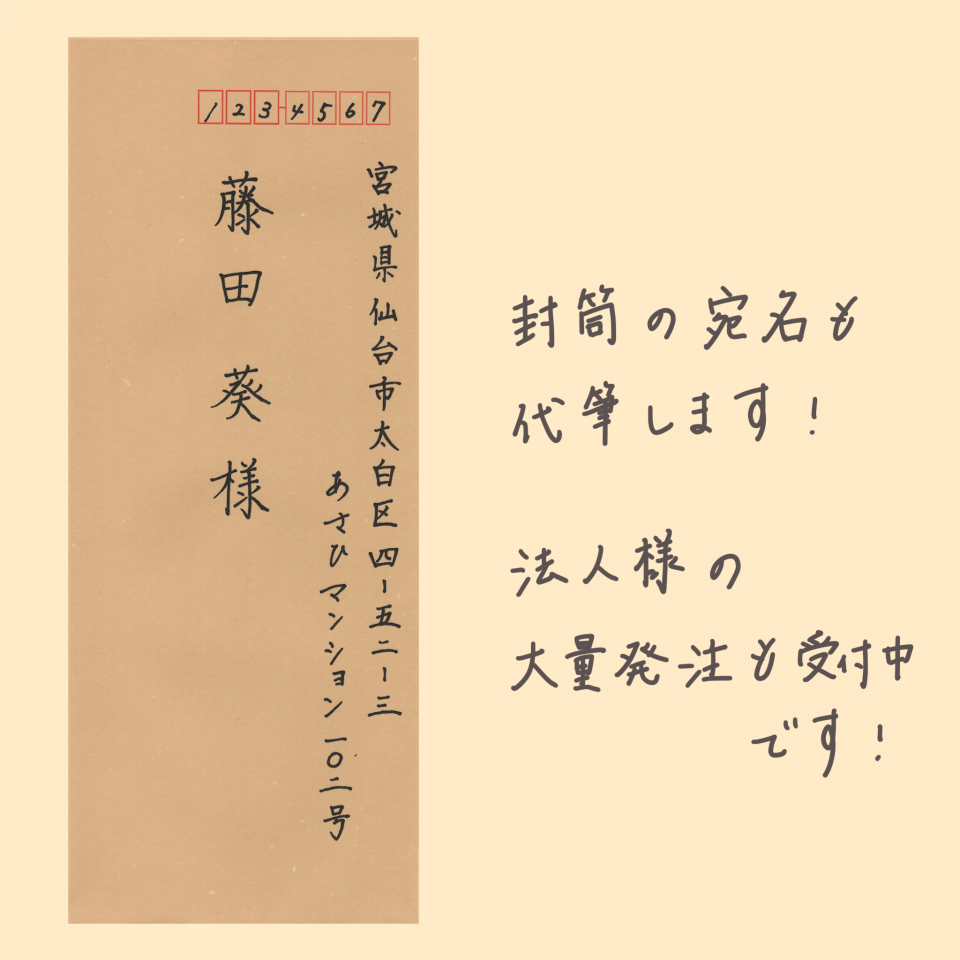 1234567
宮城県仙台市太白区四-五二-三
あさひマンション一〇二号
藤田葵様
封筒の宛名も
代筆します!
法人様の
大量発注も受付中
です!